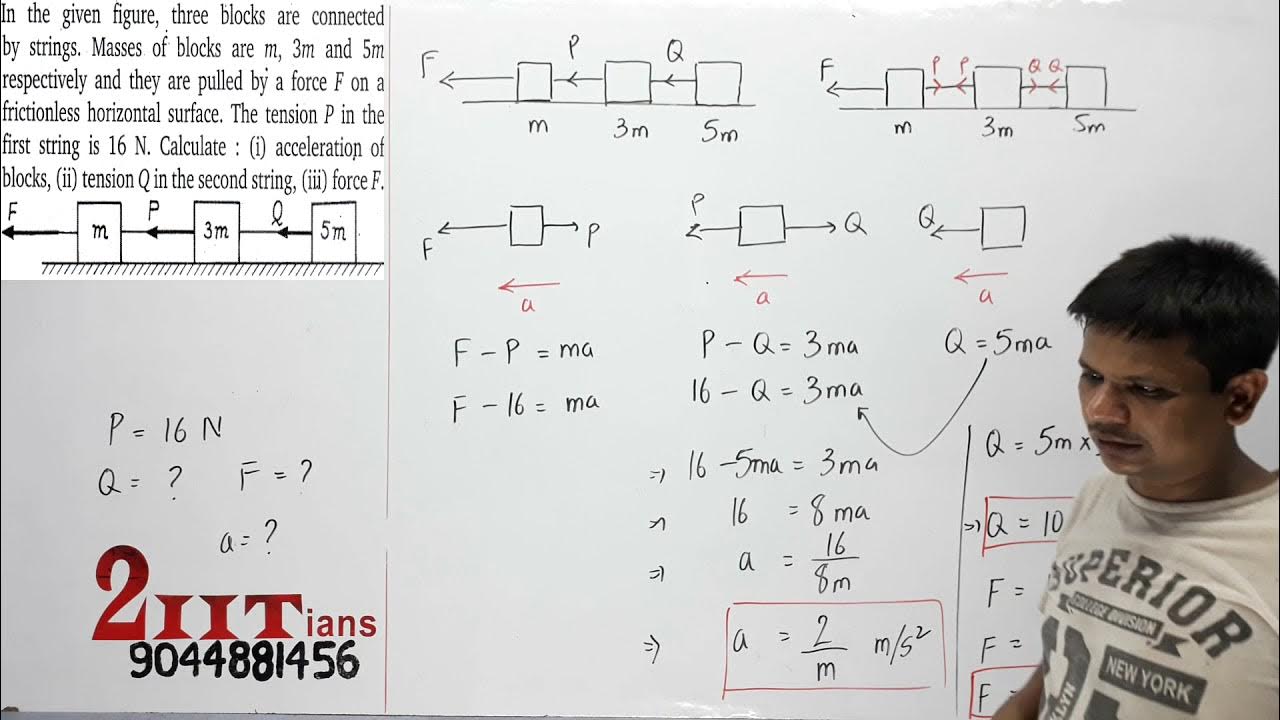 In the given figure, three blocks are connected
by strings. Masses of blocks are m, 3m and 5m
respectively and they are pulled by a force F on a
frictionless horizontal surface. The tension P in the
first string is 16 N. Calculate : (i) acceleration of
blocks, (ii) tension Q in the second string, (iii) force F.
F m P 3m Q 5m
P = 16 N
Q = ? F = ?
a = ?
2IITians
9044881456
F P Q
m 3m 5m
F P P Q Q
m 3m 5m
F P
a
P Q
a
Q
a
F - P = ma
F - 16 = ma
P - Q = 3ma
16 - Q = 3ma
=> 16 - 5ma = 3ma
=> 16 = 8ma
=> a = 16/8m
=> a = 2/m m/s²
Q = 5ma
Q = 5m ×
=> Q = 10
F =
F =
F =
SUPERIOR
COLLEGE DIVISION
NEW YORK